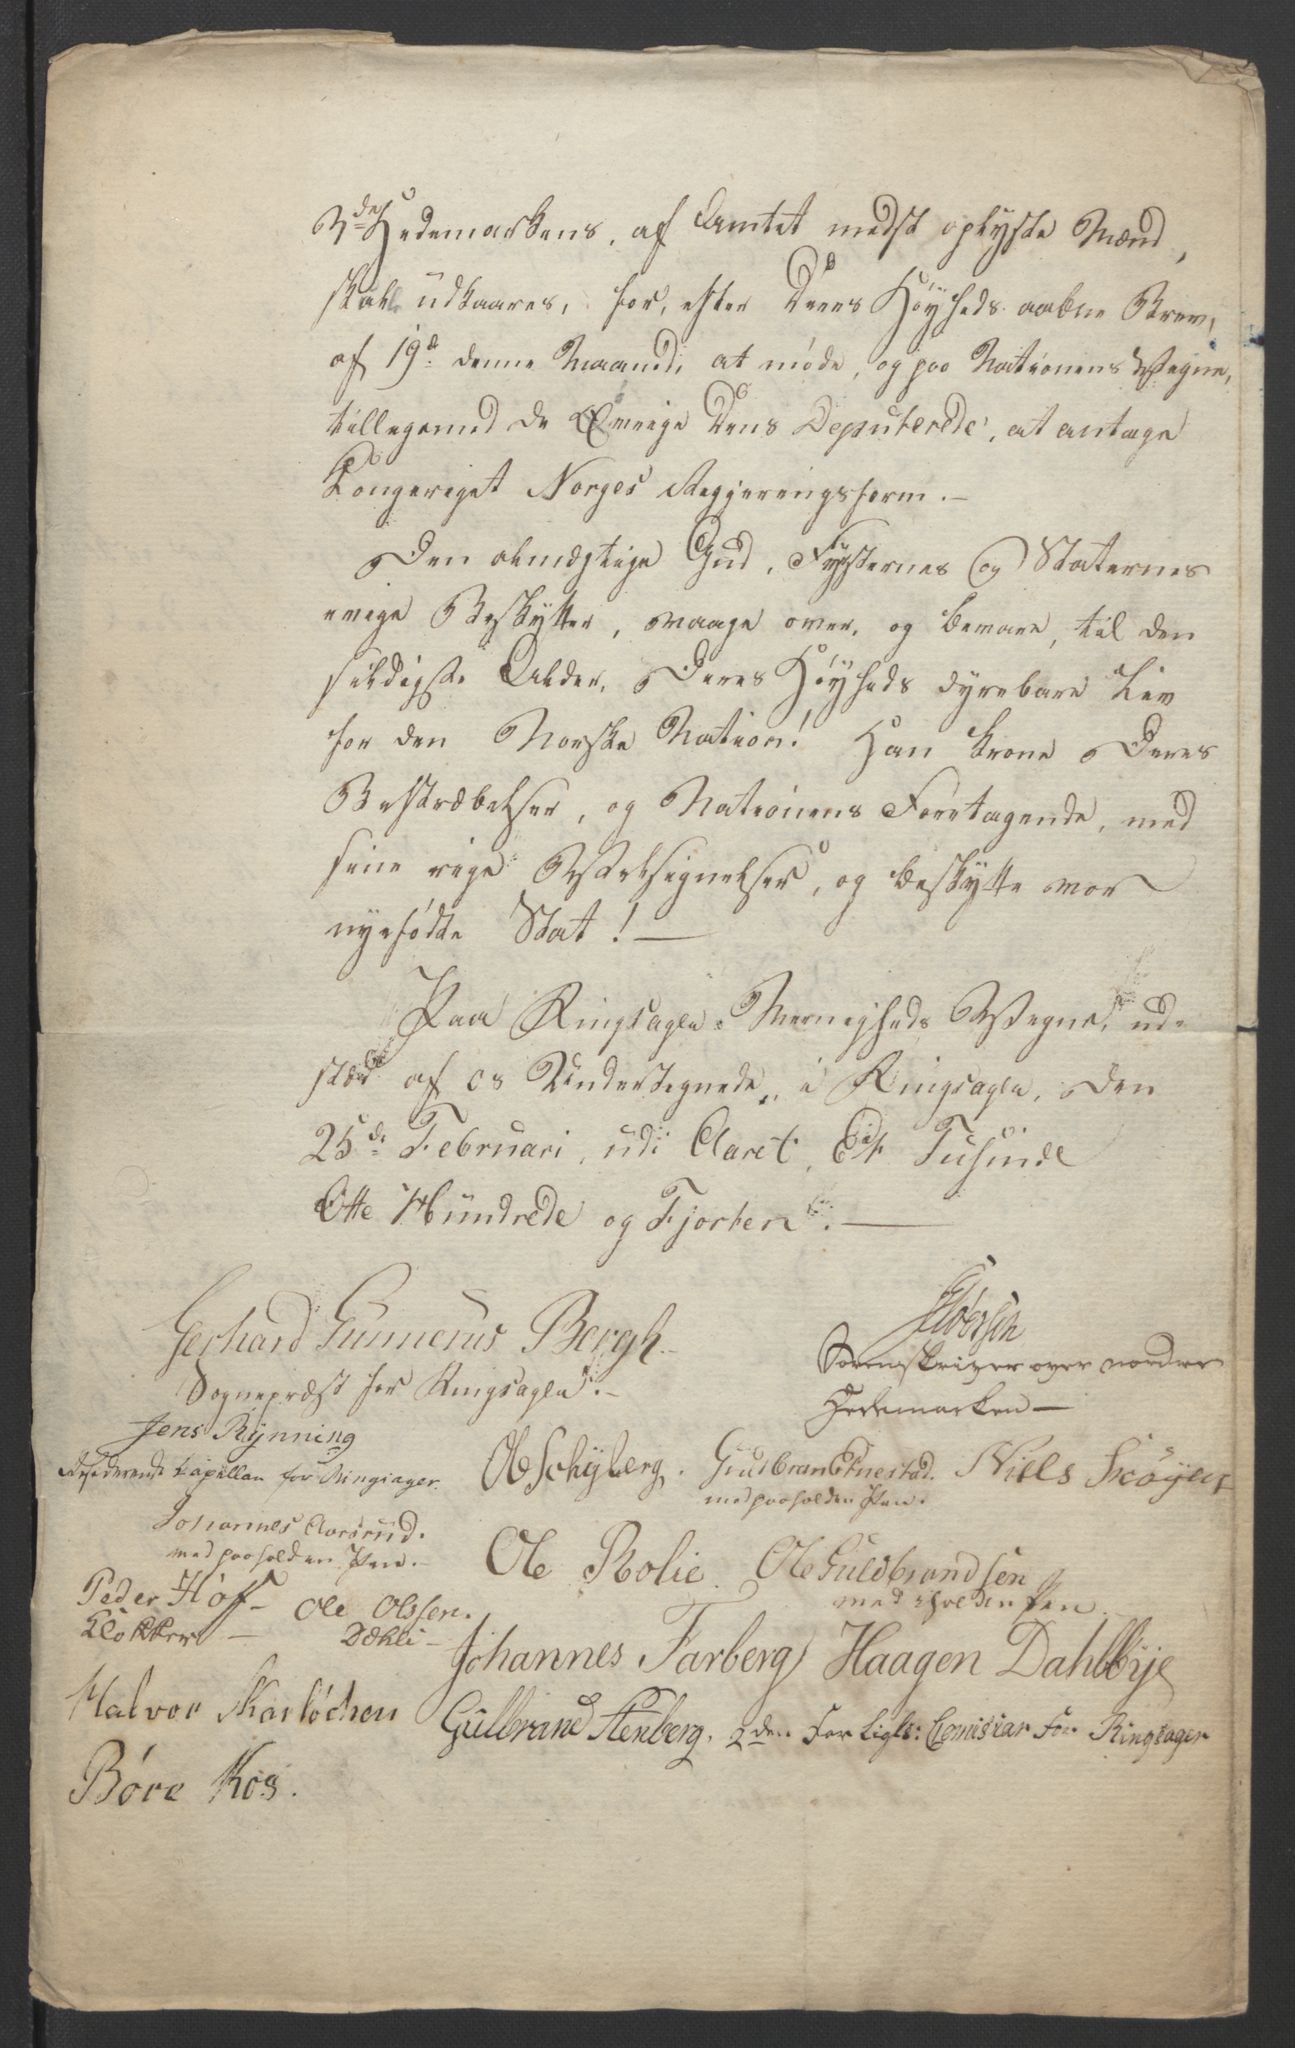 N<sup>dre</sup> Hedemarkens, af Amtet meest oplyste Mænd,
skal udkaares, for, efter Deres Høyheds aabne Brev,
af 19<sup>de</sup> denne Maaned, at møde, og paa Nationens Vegne,
tillegemed de Øvrige Dens Deputerede, at antage
Kongeriget Norges Regjeringsform.—
Den almægtige Gud, Fyrsternes og Staternes
evige Beskytter, vaage over, og bevare, til den
sildigste Alder, Deres Høyheds dyrebare Liv
for den Norske Nation! Han krone Deres
Bestræbelser, og Nationens Foretagende, med
sine rige Velsignelser, og beskytte vor
nyefødte Stat!—
Paa Ringsagers Menigheds Vegne, ud-
stæd af os Undertegnede, i Ringsager, den
25<sup>de</sup> Februari, udi Aaret, Et Tusinde
Otte Hundrede og Fjorten.—
Gerhard Gunnerus Bergh.
Sognepræst for Ringsager.—
Sorenskriver over nordre
Hedemarken—
Jens Rynning
Residerende Capellan for Ringsager.
Ole Schyberg. Gudbran Etnestad. Niels Scøyen
med paaholden Pen.
Johannes Aarsrud.
med paaholden Pen.—
Ole Rolie. Ole Guldbrandsen
med iholden Pen.
Peder Hoff— Ole Olssen.
Klokker— Dæhli—
Johannes Farberg Haagen Dahlbye
Halvor Skarløchen
Gulbrand Stenberg. 2<sup>den</sup> For Ligls: Comisiar For Ringsager
Børe Kos.